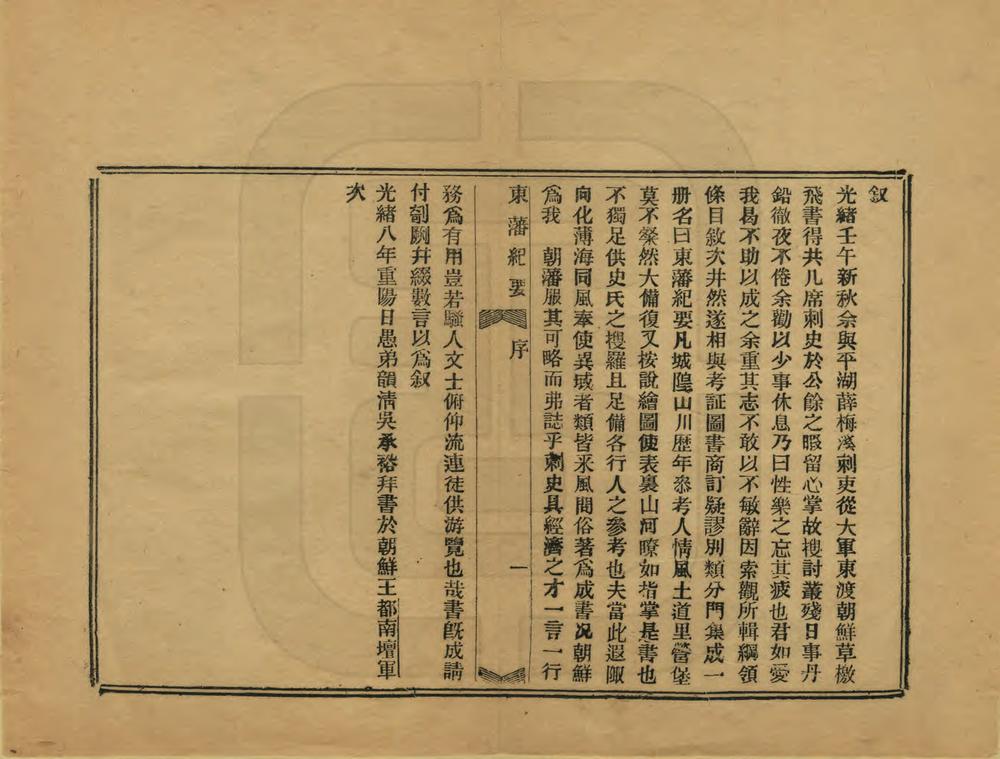 敘
光緒壬午新秋余與平湖薛梅溪刺史從大軍東渡朝鮮草檄
飛書得共几席刺史於公餘之暇留心掌故搜討叢殘日事丹
鉛徹夜不倦余勸以少事休息乃曰性樂之忘其疲也君如愛
我曷不助以成之余重其志不敢以不敏辭因索觀所輯綱領
條目敘次井然遂相與考証圖書商訂疑謬別類分門集成一
册名曰東藩紀要凡城隍山川歷年叅考人情風土道里營堡
莫不粲然大備復又按說繪圖使表裏山河瞭如指掌是書也
不獨足供史氏之搜羅且足備各行人之參考也夫當此遐陬
向化薄海同風奉使異域者類皆釆風問俗著爲成書况朝鮮
爲我　朝藩服其可略而弗誌乎刺史具經濟之才一言一行
東藩紀要　序　一
務爲有用豈若騷人文士俯仰流連徒供游覽也哉書旣成請
付剞劂幷綴數言以爲敘
光緒八年重陽日愚弟韻淸吳承裕拜書於朝鮮王都南壇軍
次